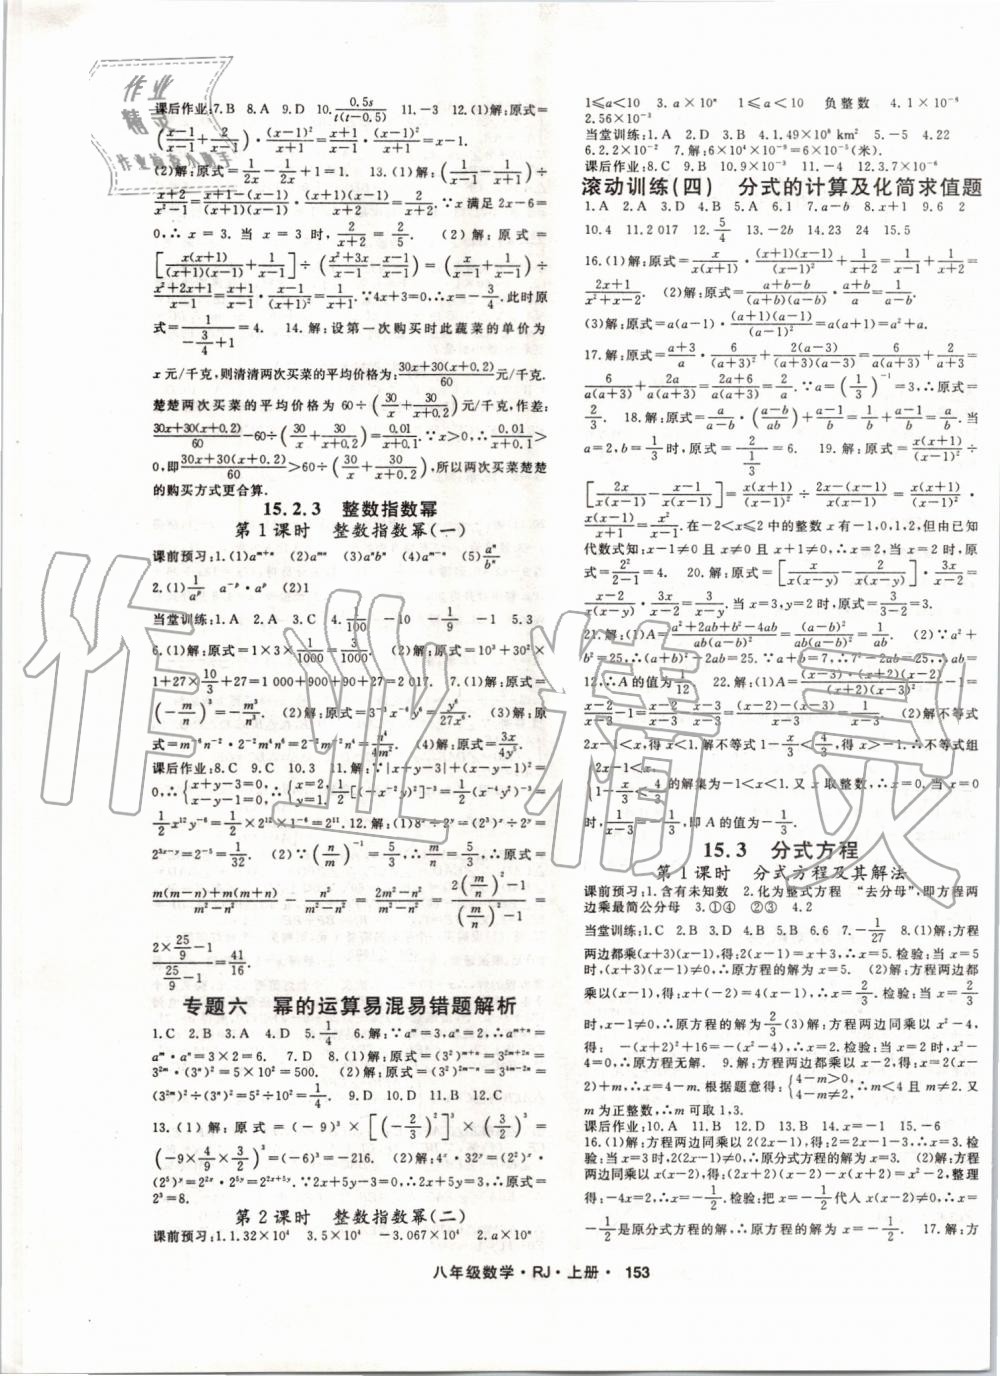 作业
精灵
作业检查小助手
课后作业:7.B 8.A 9.D 10.0.5s/t(t-0.5) 11.-3 12.(1)解:原式=
((x-1)/(x-1)+2/(x-1))·(x-1)²/(x+1)=(x+1)/(x-1)·(x-1)²/(x+1)=x-1.
(2)解:原式=1/(2x)-(1/(2x)-1)=1/(2x)-1/(2x)+1=1. 13.(1)解:原式=
(x+2)/(x²-1)·(x+1)/(x-1)
0,∴x=3.当x=3时,2/(x+2)=2/5. (2)解:原式=
[x(x+1)/((x+1)(x-1))+1/(x-1)]÷((x²+3x)/(x-1)-(x-1)/(x-1))=(x+1)/(x-1)÷
(x²+2x+1)/(x-1)=(x+1)/(x-1)·(x-1)/(x+1)²=1/(x+1).∵4x+3=0,∴x=-3/4.此时原
式=1/(-3/4+1)=4. 14.解:设第一次购买时此蔬菜的单价为
x元/千克,则清清两次买菜的平均价格为:(30x+30(x+0.2))/60元/千克.
楚楚两次买菜的平均价格为60÷(30/x+30/(x+0.2))元/千克,作差:
(30x+30(x+0.2))/60-60÷(30/x+30/(x+0.2))=0.01/(x+0.1).∵x>0,∴0.01/(x+0.1)>
0,即(30x+30(x+0.2))/60>60÷(30/x+30/(x+0.2)),所以两次买菜楚楚
的购买方式更合算.
15.2.3 整数指数幂
第1课时 整数指数幂(一)
课前预习:1.(1)aᵐ⁺ⁿ (2)aᵐⁿ (3)aⁿbⁿ (4)aᵐ⁻ⁿ (5)aⁿ/bⁿ
2.(1)1/aᵖ a⁻ᵖ·aᵖ (2)1
当堂训练:1.A 2.A 3.C 4.1/100 -10 -1/9 -1 5.3
6.(1)解:原式=1×3×1/1000=3/1000. (2)解:原式=10³+30²×
1+27×10/3+27=1 000+900+90+27=2 017. 7.(1)解:原式=
(-n/m)³=-n³/m³. (2)解:原式=3⁻³x⁻⁶y⁶=y⁶/(27x⁶). (3)解:原
课后作业:8.C 9.C 10.3 11.解:∵|x+y-3|+(x-1)²=
1/2x¹²y⁻⁶=1/2×2¹²×1⁻⁶=2¹¹. 12.解:(1)8ˣ÷2ʸ=(2³)ˣ÷2ʸ=
2³ˣ⁻ʸ=2⁻⁵=1/32. (2)∵(n/m)⁻¹=5/3,∴m/n=5/3,∴原式=
(m(m-n)+m(m+n))/(m²-n²)-n²/(m²-n²)=(2m²-n²)/(m²-n²)=(2(m/n)²-1)/((m/n)²-1)=
(2×25/9-1)/(25/9-1)=41/16.
专题六 幂的运算易混易错题解析
1.C 2.B 3.A 4.D 5.1/4 6.解:∵aᵐ=3,aⁿ=2,∴aᵐ⁺ⁿ=
aᵐ·aⁿ=3×2=6. 7.D 8.(1)解:原式=(3²)ᵐ⁺ⁿ=3²ᵐ⁺²ⁿ=
3²ᵐ·(3ⁿ)²=5×10²=500. (2)解:原式=(3²)ᵐ⁻²ⁿ=3²ᵐ⁻⁴ⁿ=
(3²)ᵐ÷(3ⁿ)⁴=5÷10⁴=1/2000. 9.D 10.D 11.B 12.C
13.(1)解:原式=(-9)³×[-2/3]³×(2/3)³=
(-9×4/9×3/2)³=(-6)³=-216. (2)解:原式=4ˣ·32ʸ=(2²)ˣ·
(2⁵)ʸ=2²ˣ·2⁵ʸ=2²ˣ⁺⁵ʸ.∵2x+5y-3=0,∴2x+5y=3,∴原式=
2³=8.
第2课时 整数指数幂(二)
课前预习:1.1.32×10⁴ 3.5×10⁴ -3.067×10⁴ 2.a×10ⁿ
1≤a<10 3.a×10ⁿ 1≤a<10 负整数 4.1×10⁻⁶
2.56×10⁻³
当堂训练:1.A 2.D 3.B 4.1.49×10⁸ km² 5.-5 4.22
6.2.2×10⁻⁶ 7.解:6×10⁴×10⁻⁹=6×10⁻⁵(米).
课后作业:8.C 9.B 10.9×10⁻³ 11.-4 12.3.7×10⁻⁶
滚动训练(四) 分式的计算及化简求值题
1.A 2.A 3.D 4.B 5.A 6.1 7.a-b 8.x+1 9.6 2
10.4 11.2 017 12.5/4 13.-2b 14.23 24 15.5
16.(1)解:原式=x/(x(x+1))·(x+1)(x-1)
(2x+1)/(x²+x-2). (2)解:原式=(a+b-b)/((a+b)(a-b))·(a+b)/a=1/(a-b).
(3)解:原式=a(a-1)·(a+1)(a-1)/(a-1)²=a(a+1)=a²+a.
17.解:原式=(a+3)/a·6/(a+3)²+2(a-3)/((a+3)(a-3))=6/(a(a+3))+2/(a+3)=
6/(a(a+3))+2a/(a(a+3))=(2a+6)/(a(a+3))=2/a.∵a=(1/3)⁻¹=3,∴原式=
2/3. 18.解:原式=a/(a-b)·((a-b)/(ab))+(a-1)/b=1/b+(a-1)/b=a/b.当
a=2,b=1/3时,原式=2/(1/3)=6. 19.解:原式=x(x+1)/(x-1)²÷
[2x/(x(x-1))-(x-1)/(x(x-1))]=x(x+1)/(x-1)²÷(x+1)/(x(x-1))=x(x+1)/(x-1)²·
x(x-1)/(x+1)=x²/(x-1).在-2<x≤2中的整数x有-1,0,1,2,但由已知
代数式知:x-1≠0且x≠0且x+1≠0,∴x=2.当x=2时,原式=
2²/(2-1)=4. 20.解:原式=
当x=3,y=2时,原式=3/(3-2)=3.
21.解:(1)A=(a²+2ab+b²-4ab)/(ab(a-b)²)=(a-b)²/(ab(a-b)²)=1/ab. (2)∵a²+
b²=25,∴(a+b)²-2ab=25.∵a+b=7,∴7²-2ab=25,∴ab=
12,∴A的值为1/12. 22.解:(1)A=(x-3)·(x+2)(x-2)/((x+2)(x-3)²)-1=
(x-2)/(x-3)-1=(x-2)/(x-3)-(x-3)/(x-3)=((x-2)-(x-3))/(x-3)=1/(x-3). (2)解不等式
2x-1<x,得x<1.解不等式1-x/3<4/3,得x>-1.∴不等式组
{2x-1<x, 1-x/3<4/3的解集为-1<x<1.又x取整数,∴x=0.当x=0
时,1/(x-3)=-1/3,即A的值为-1/3.
15.3 分式方程
第1课时 分式方程及其解法
课前预习:1.含有未知数 2.化为整式方程 “去分母”,即方程两
边乘最简公分母 3.①④ ②③ 4.2
当堂训练:1.C 2.B 3.D 4.D 5.B 6.6 7.-1/27 8.(1)解:方程
两边都乘(x+3)(x-1),得:2(x-1)=x+3,∴x=5.检验:当x=5
时,(x+3)(x-1)≠0,∴原方程的解为x=5. (2)解:方程两边都
乘以(x-1),得:x-2(x-1)=2x-… ∴x=2/3.检验:当x=2/3
时,x-1≠0,∴原方程的解为2/3(3)解:方程两边同乘以x²-4,
得: -(x+2)²+16=-(x²-4).∴x=2.检验:当x=2时,x²-
4=0,∴原方程无解. 9.解:方程两边都乘x-2,得:x=2(x-
2)+m,∴x=4-m.根据题意得:{4-m>0, 4-m≠2,∴m<4且m≠2.又
m为正整数,∴m可取1,3.
课后作业:10.A 11.D 12.D 13.B 14.x=1 15.-6
16.(1)解:方程两边同乘以2(2x-1),得:2=2x-1-3,∴x=3.检
验:当x=3时,2(2x-1)≠0,∴原分式方程的解为x=3. (2)解:方程
两边同乘以x(x-2),得:(2x+2)(x-2)-x(x+2)=x²-2,整理
得:-4x=2,∴x=-1/2.检验:把x=-1/2代入x(x-2)≠0,∴x=
-1/2是原分式方程的解,∴原方程的解为x=-1/2. 17.解:方
八年级数学·RJ·上册· 153
作业精灵